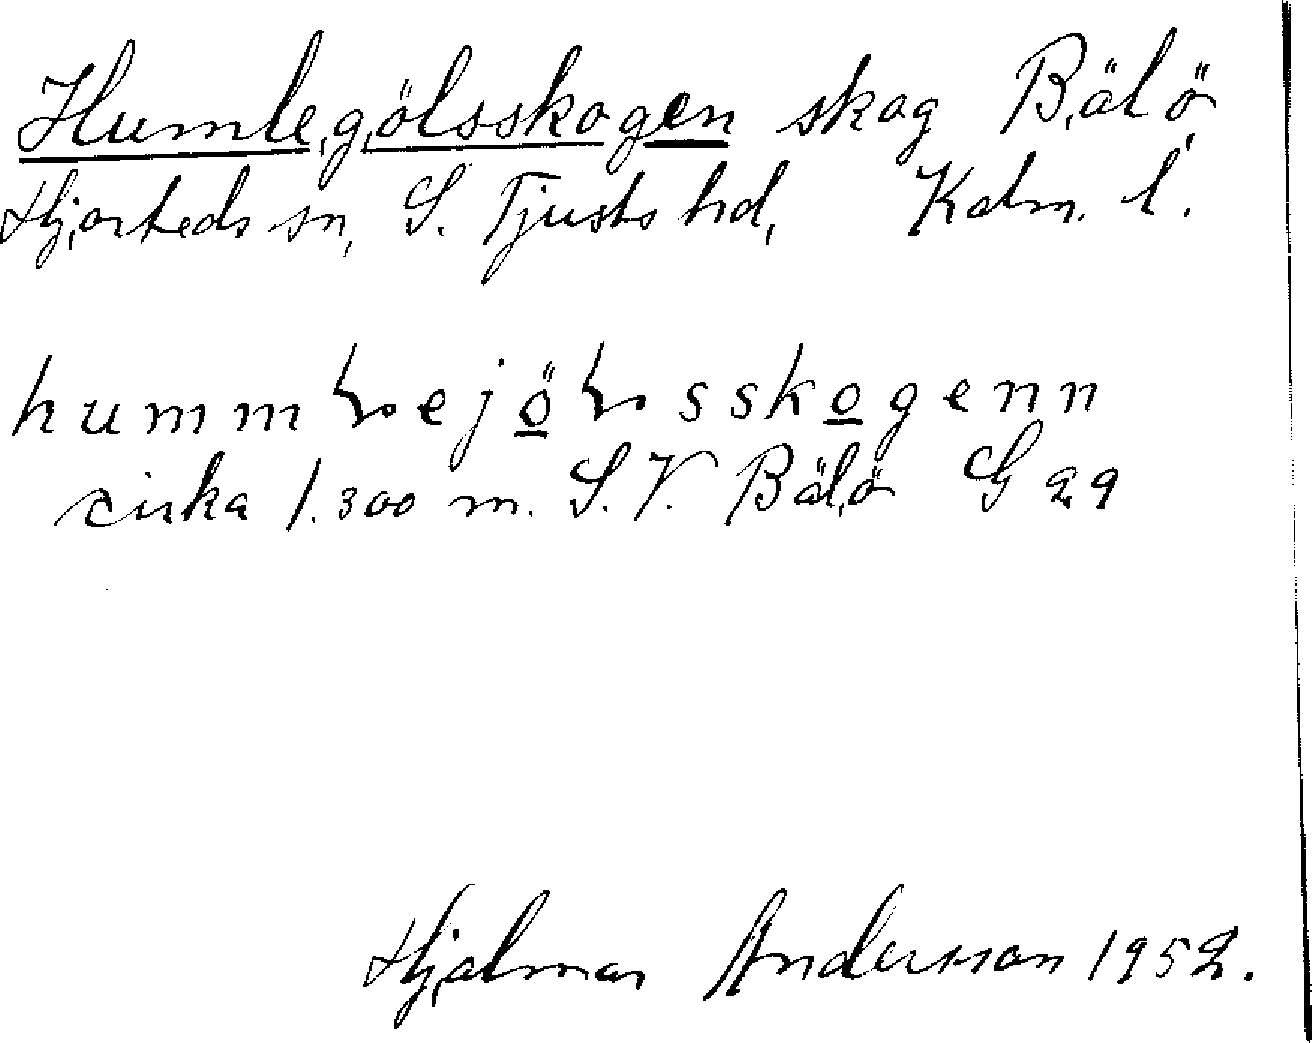 Humlegölsskogen skog Bälö
Hjorteds sn, S. Tjusts hd, Kalm. l.
hummɬejöɬsskogenn
cirka 1.300 m. S.V. Bälö G 29
Hjalmar Andersson 1952.